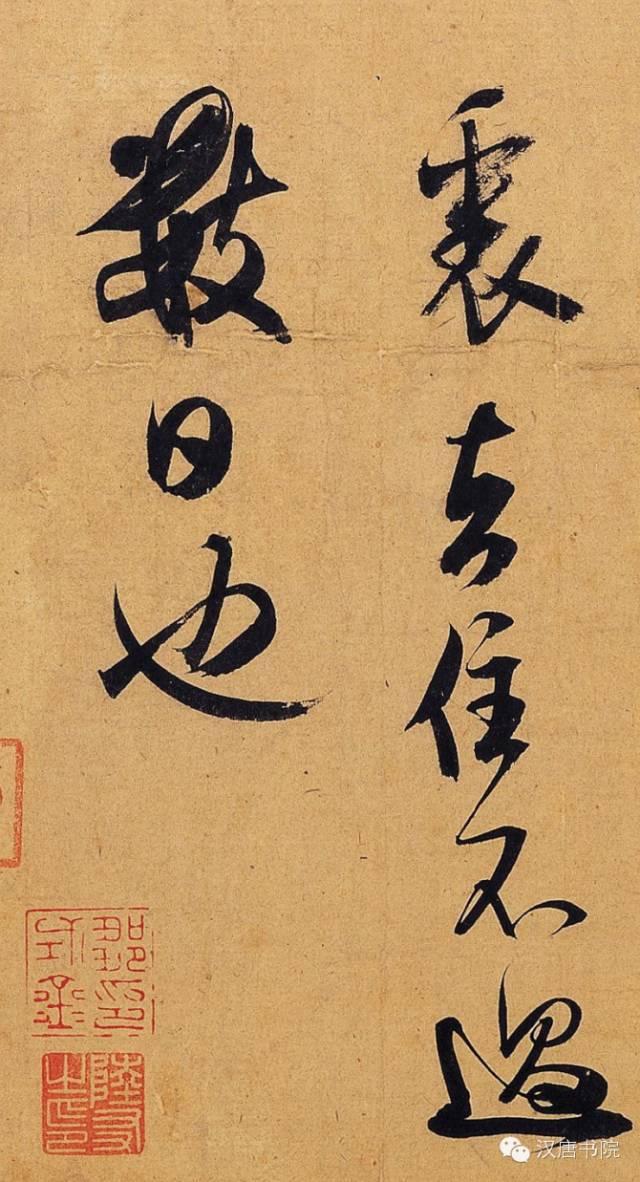 襄去住不過
數日也
汉唐书院